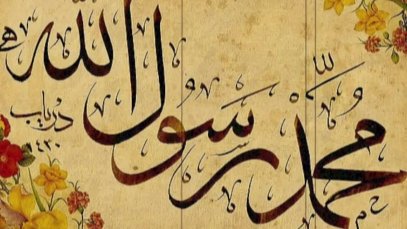 محمد رسول الله
درباب
١٤٣٠